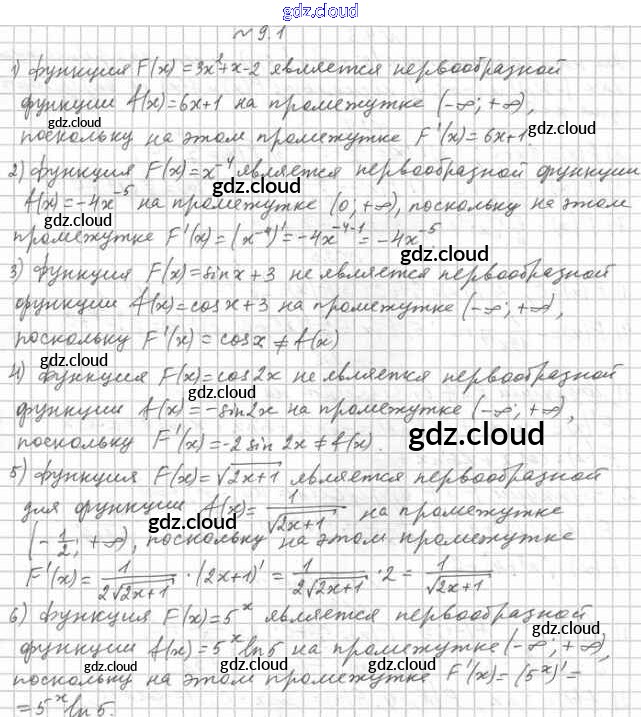 gdz.cloud
№ 9.1
1) функция F(x) = 3x²+x-2 является первообразной
функции f(x) = 6x+1 на промежутке (-∞; +∞),
поскольку на этом промежутке F'(x) = 6x+1
gdz.cloud
2) функция F(x) = x⁻⁴ является первообразной функции
gdz.cloud
f(x) = -4x⁻⁵ на промежутке (0; +∞), поскольку на этом
промежутке F'(x) = (x⁻⁴)' = -4x⁻⁴⁻¹ = -4x⁻⁵
gdz.cloud
3) функция F(x) = sin x + 3 не является первообразной
функции f(x) = cos x + 3 на промежутке (-∞; +∞),
поскольку F'(x) = cos x ≠ f(x)
gdz.cloud
4) функция F(x) = cos 2x не является первообразной
функции f(x) = -sin 2x на промежутке (-∞; +∞),
поскольку F'(x) = -2 sin 2x ≠ f(x).
gdz.cloud
5) функция F(x) = √(2x+1) является первообразной
для функции f(x) = 1/√(2x+1) на промежутке
gdz.cloud
(-1/2; +∞), поскольку на этом промежутке
F'(x) = 1/(2√(2x+1)) · (2x+1)' = 1/(2√(2x+1)) · 2 = 1/√(2x+1)
6) функция F(x) = 5ˣ является первообразной
gdz.cloud
функции f(x) = 5ˣ ln 5 на промежутке (-∞; +∞),
gdz.cloud gdz.cloud gdz.cloud
поскольку на этом промежутке F'(x) = (5ˣ)' =
= 5ˣ ln 5.